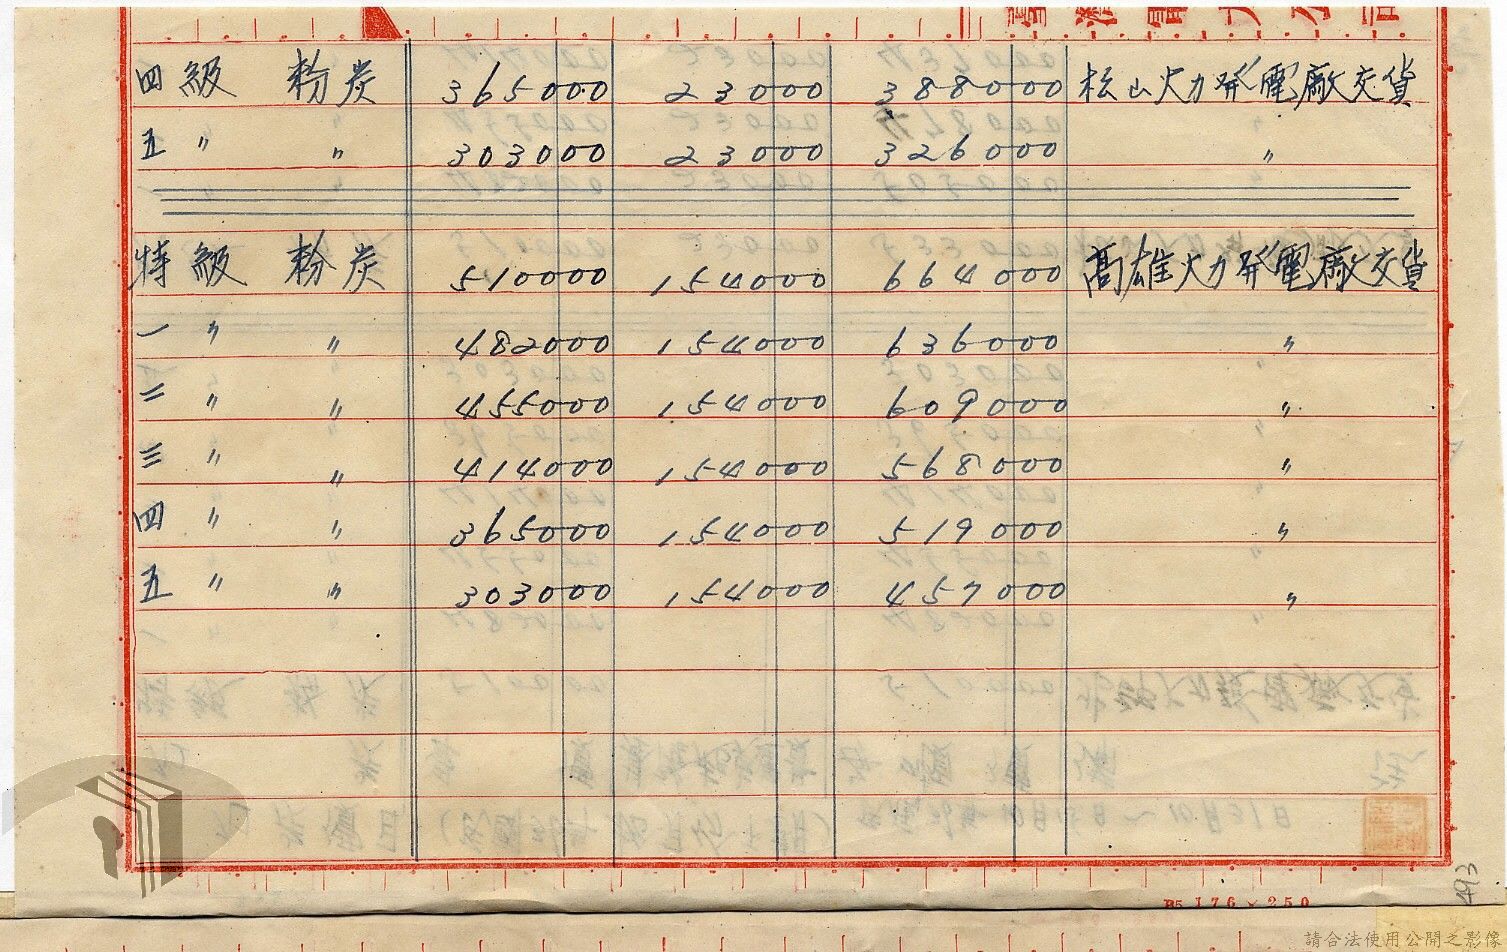 臺灣電力公司
四級 粉炭 365000 23000 388000 松山火力発電廠交貨
五〃 〃 303000 23000 326000 〃
特級 粉炭 510000 154000 664000 高雄火力発電廠交貨
一〃 〃 482000 154000 636000 〃
二〃 〃 455000 154000 609000 〃
三〃 〃 414000 154000 568000 〃
四〃 〃 365000 154000 519000 〃
五〃 〃 303000 154000 457000 〃
493
B5 176×250
請合法使用公開之影像